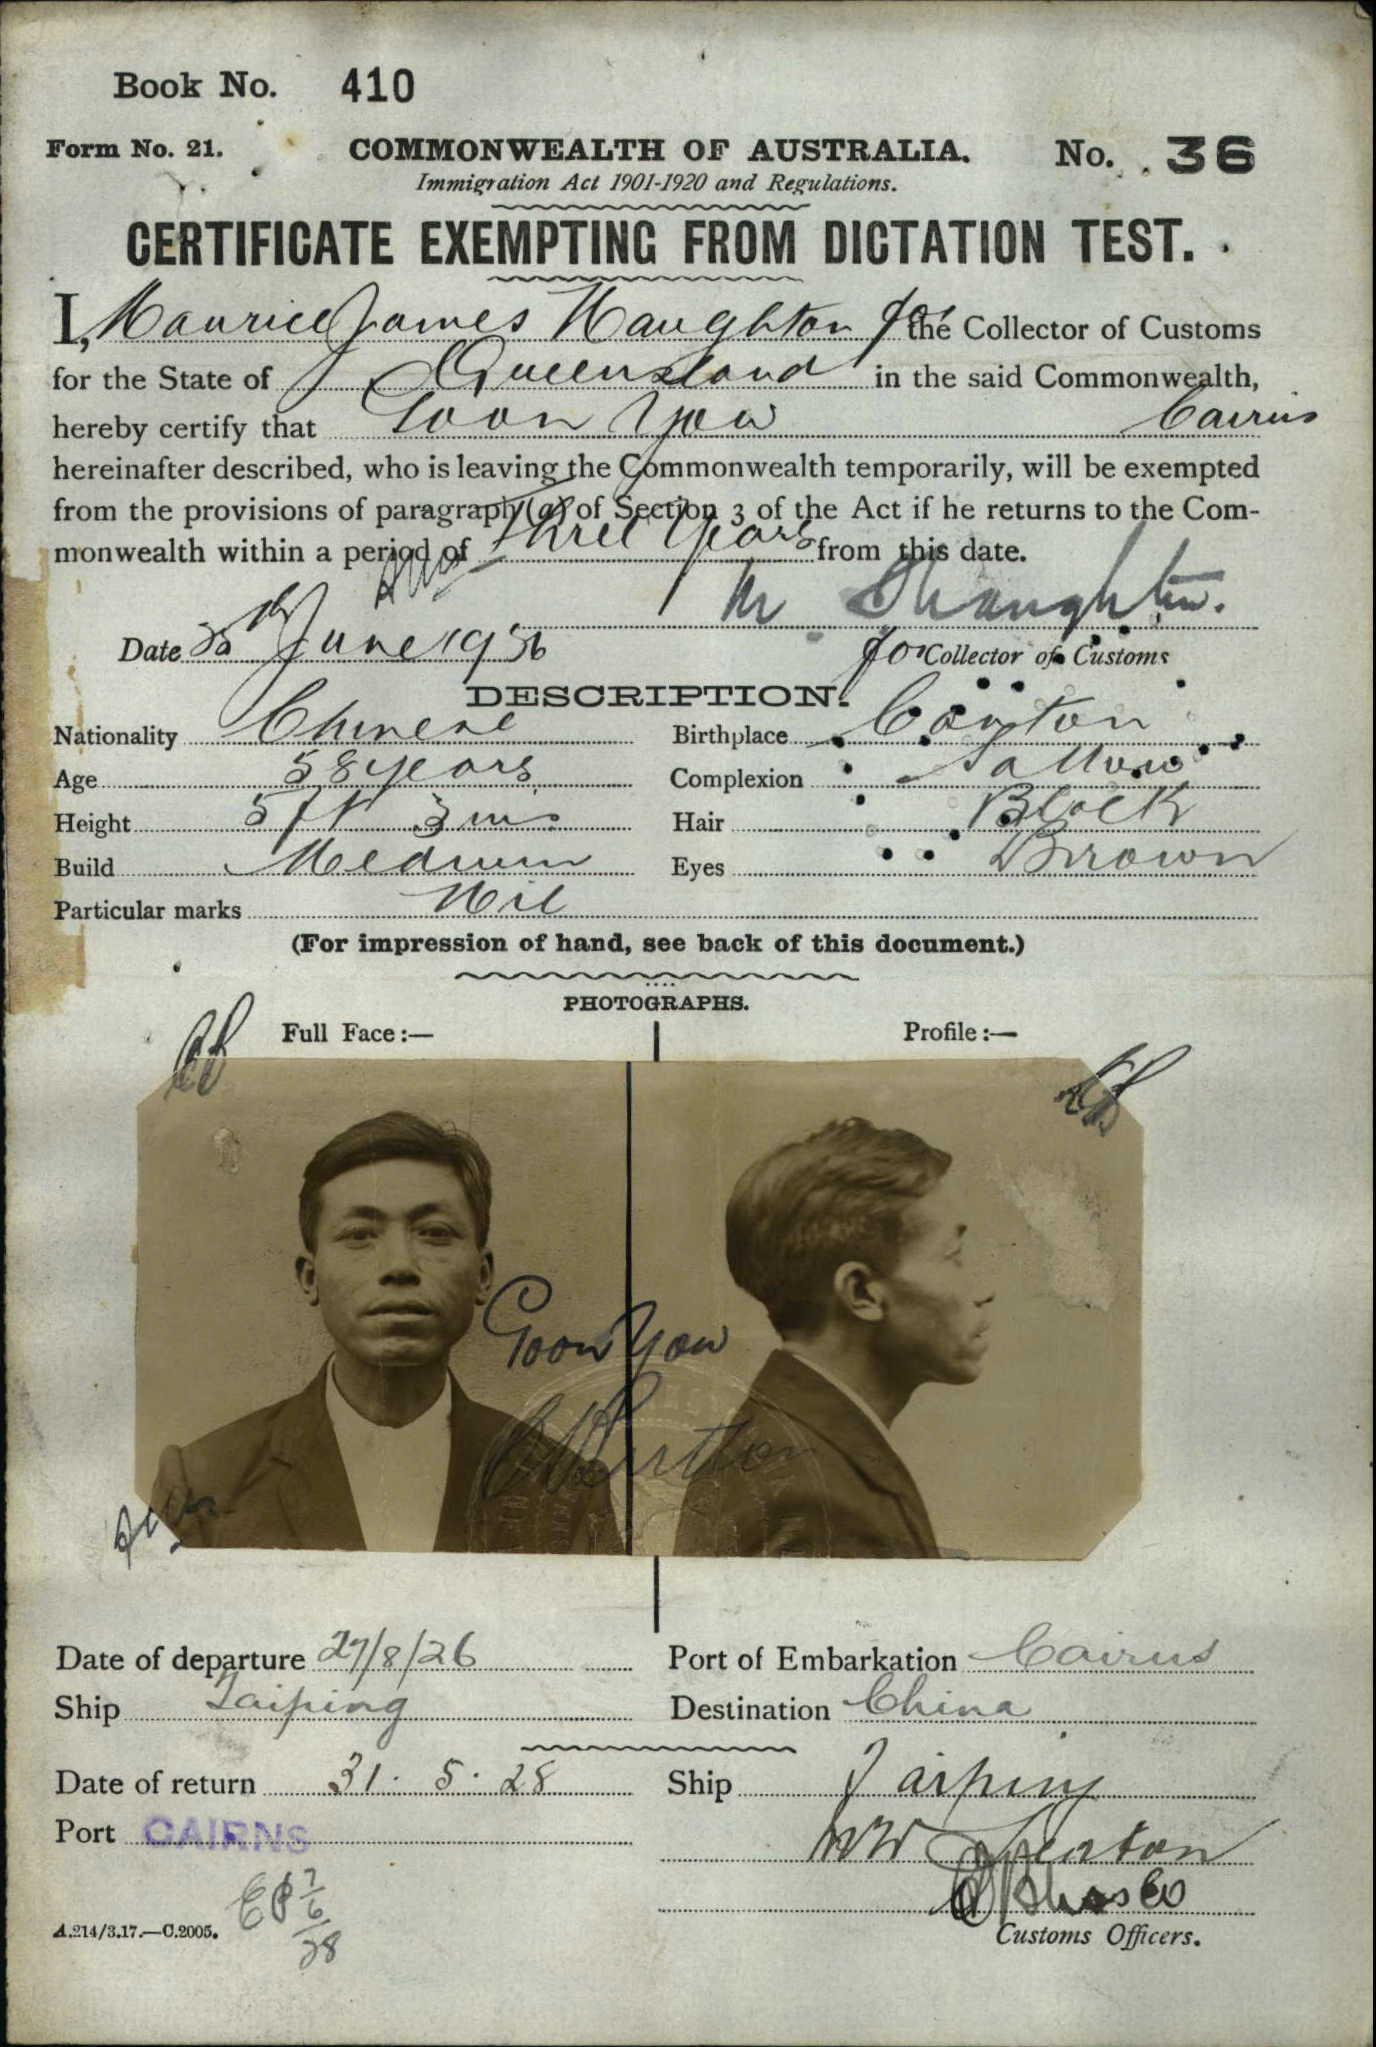 Book No. 410
Form No. 21. COMMONWEALTH OF AUSTRALIA. No. 36
Immigration Act 1901-1920 and Regulations.
CERTIFICATE EXEMPTING FROM DICTATION TEST.
I, Maurice James Naughton for the Collector of Customs
for the State of Queensland in the said Commonwealth,
hereby certify that Goon Yow Cairns
hereinafter described, who is leaving the Commonwealth temporarily, will be exempted
from the provisions of paragraph (a) of Section 3 of the Act if he returns to the Com-
monwealth within a period of three years from this date.
Date June 19
for Collector of Customs
DESCRIPTION.
Nationality Chinese Birthplace Canton
Age 58 years Complexion Sallow
Height 5 ft 3 ins Hair Black
Build Medium Eyes Brown
Particular marks Nil
(For impression of hand, see back of this document.)
PHOTOGRAPHS.
Full Face:— Profile:—
Goon Yow
Date of departure 27/8/26 Port of Embarkation Cairns
Ship Taiping Destination China
Date of return 31. 5. 28 Ship Taiping
Port CAIRNS
7/6/28
A.214/3.17.—C.2005. Customs Officers.